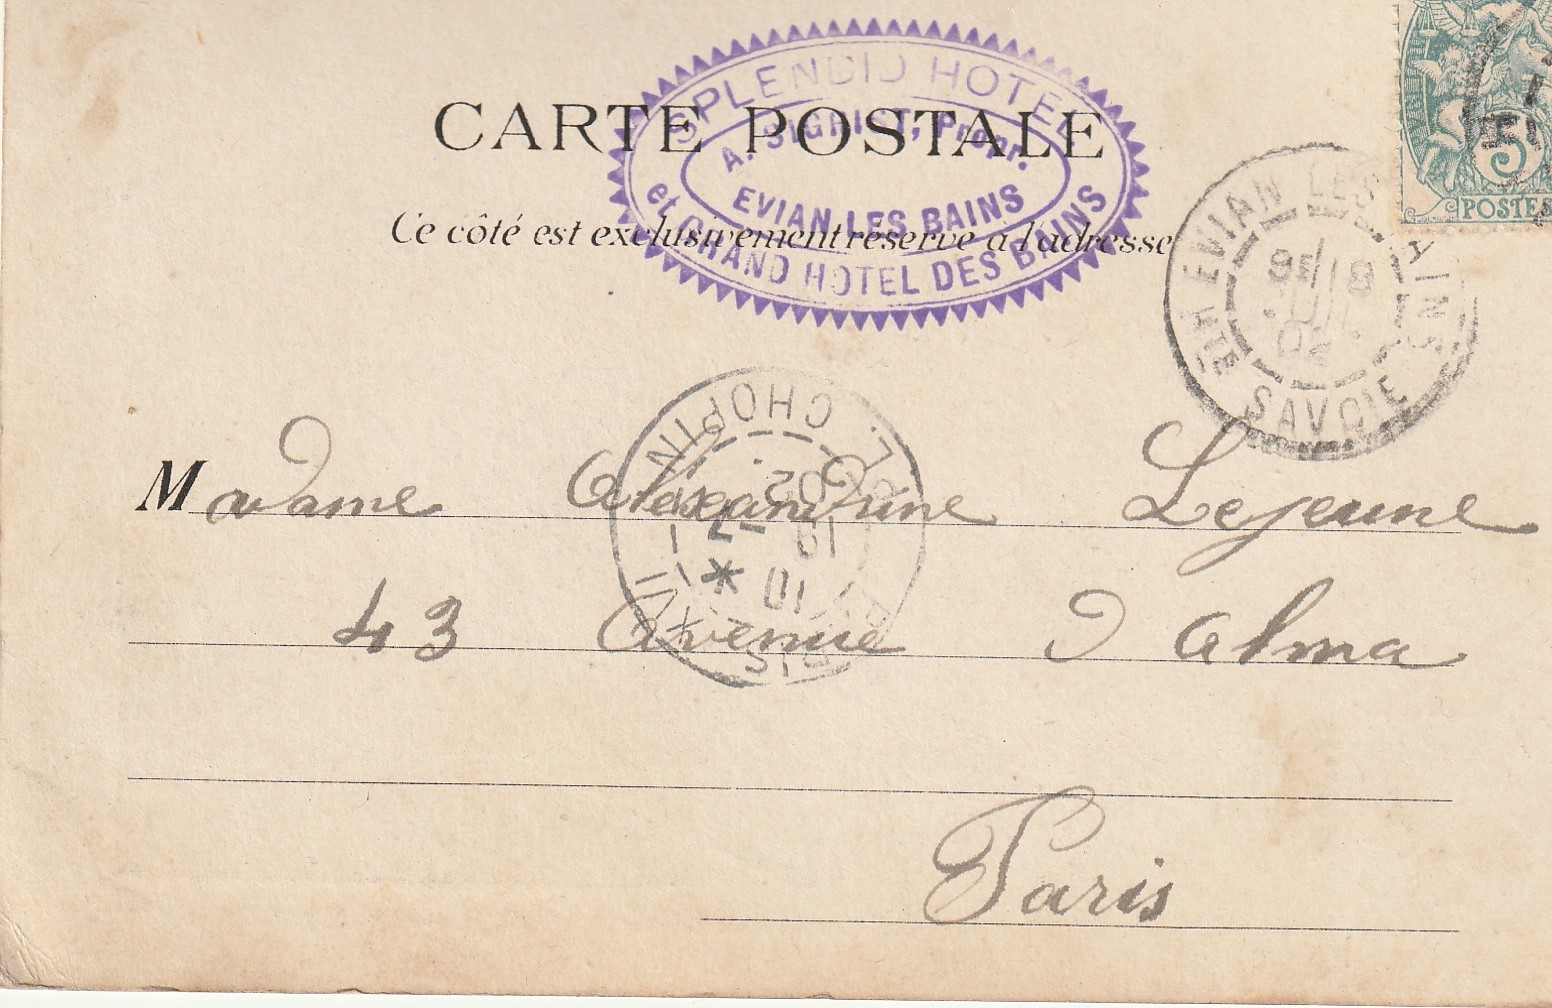 CARTE POSTALE
SPLENDID HOTEL
A. SIGRIST, Propr.
EVIAN LES BAINS
et GRAND HOTEL DES BAINS
Ce côté est exclusivement réservé à l'adresse
5
POSTES
EVIAN LES BAINS
SAVOIE
PL. CHOPIN
02
19
10
Madame Alexandrine Lejeune
43 Avenue D Alma
Paris